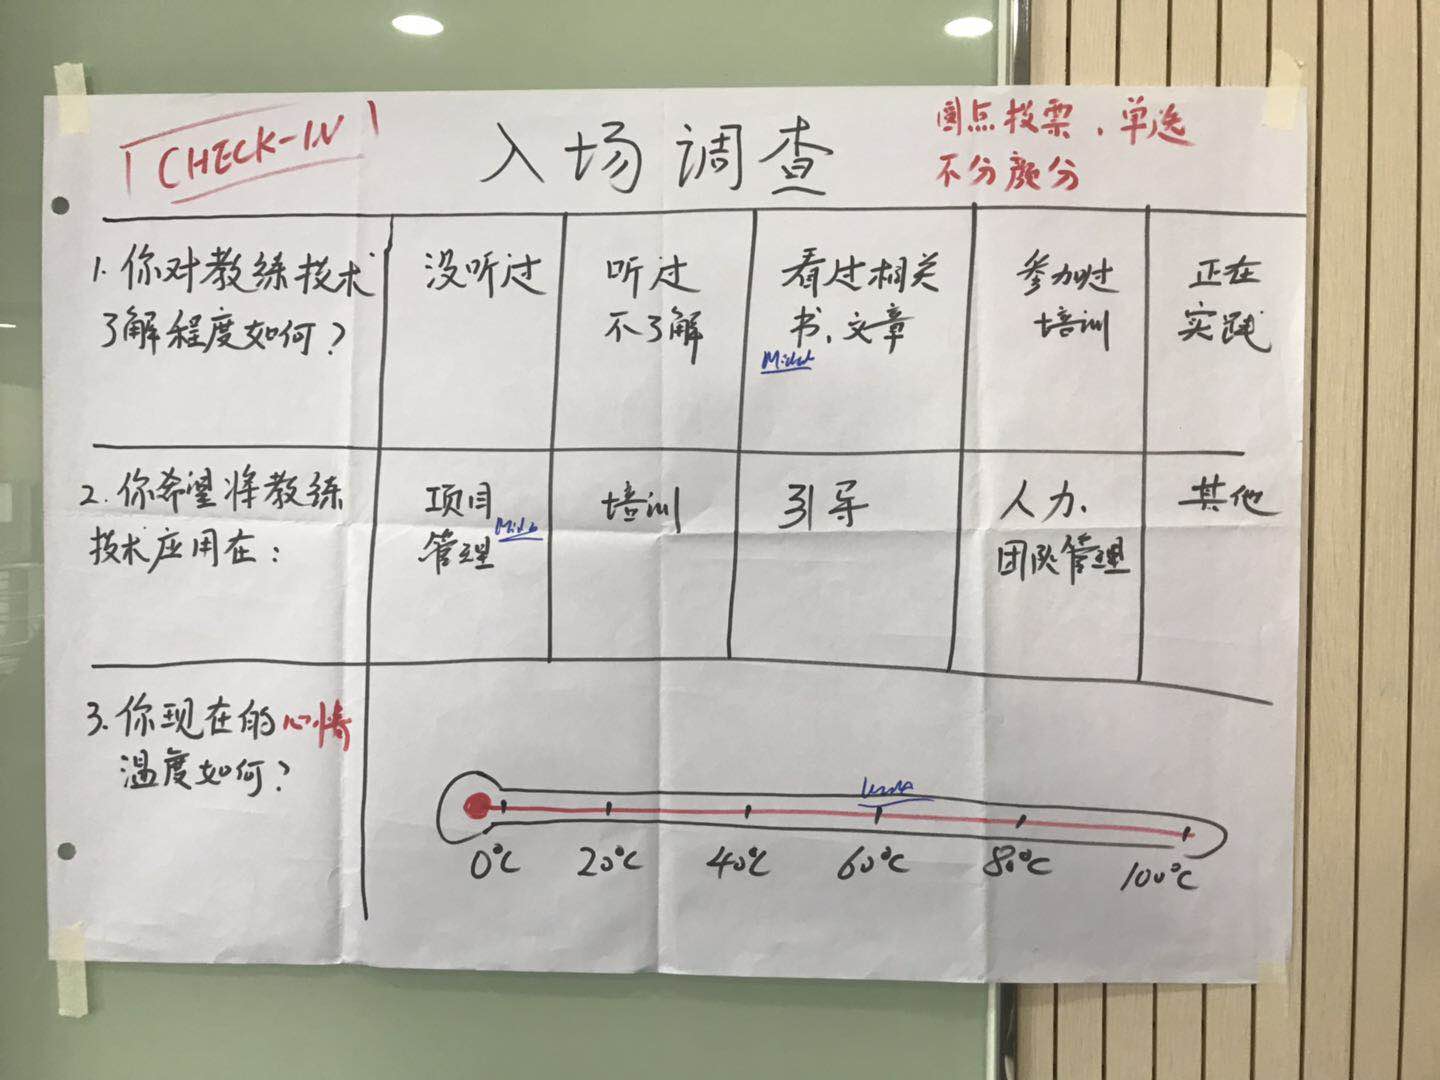 CHECK-IN
入场调查
圆点投票，单选
不分颜分
1. 你对教练技术
了解程度如何？
没听过
听过
不了解
看过相关
书、文章
参加过
培训
正在
实践
2. 你希望将教练
技术应用在：
项目
管理
培训
引导
人力、
团队管理
其他
3. 你现在的心情
温度如何？
0℃ 20℃ 40℃ 60℃ 80℃ 100℃